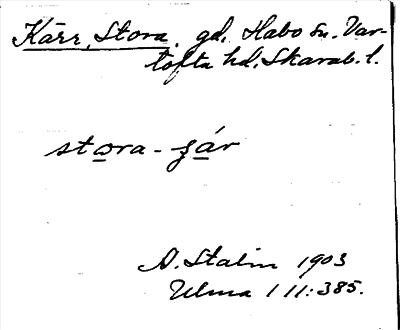 Kärr, Stora. gd. Habo sn. Var-
tofta hd. Skarab. l.
stora - ʒár
D. Stalin 1903
Ulma 111:385.